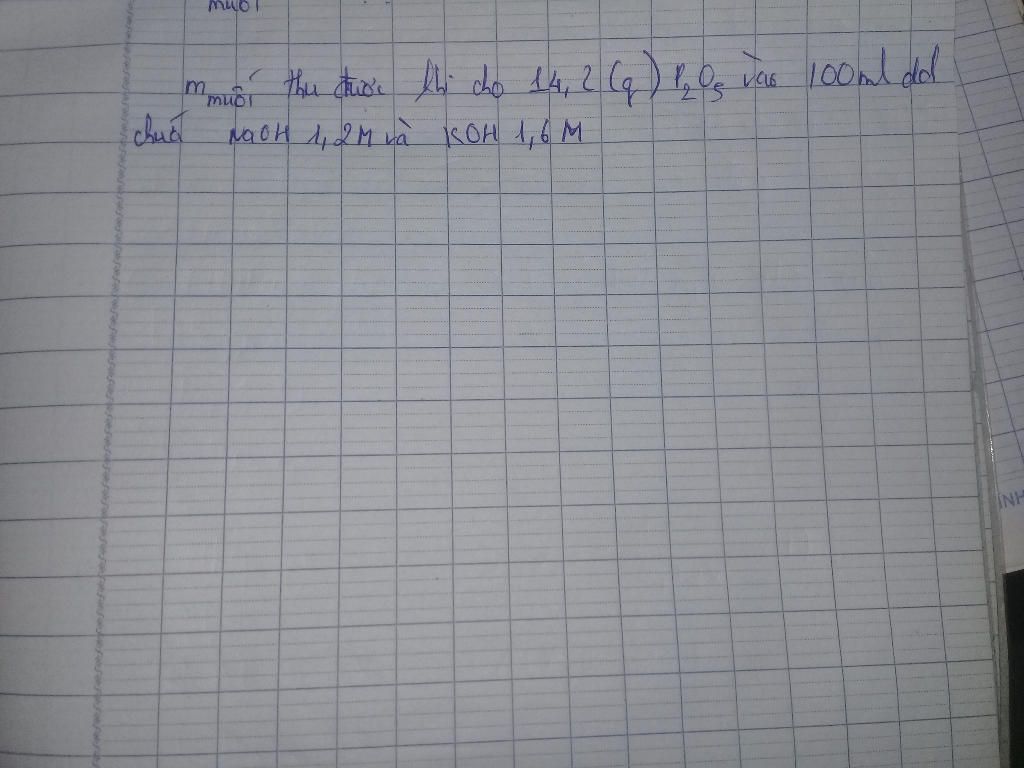 muối
m muối thu được khi cho 14,2 (g) P₂O₅ vào 100ml dd
chứa NaOH 1,2M và KOH 1,6 M
INH